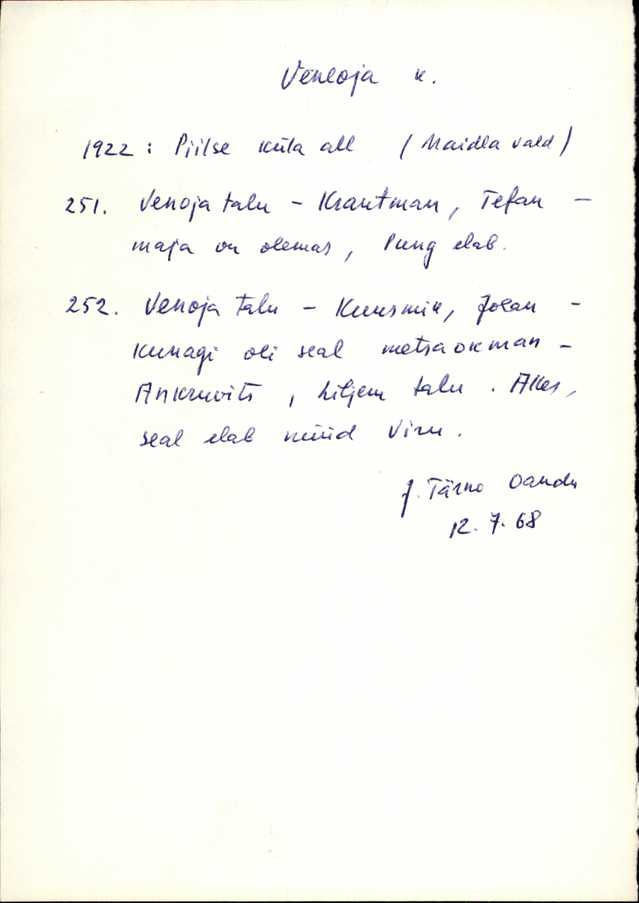 Veneoja k.
1922: Piilse küla all (Maidla vald)
251. Venoja talu - Krautman, Tefan -
maja on olemas, Pung elab.
252. Venoja talu - Kuusmik, Joean -
Kunagi oli seal metsaokman -
Ankruvits, hiljem talu. Akes,
seal elab nüüd Viru.
J. Tärno Oandu
12. 7. 68